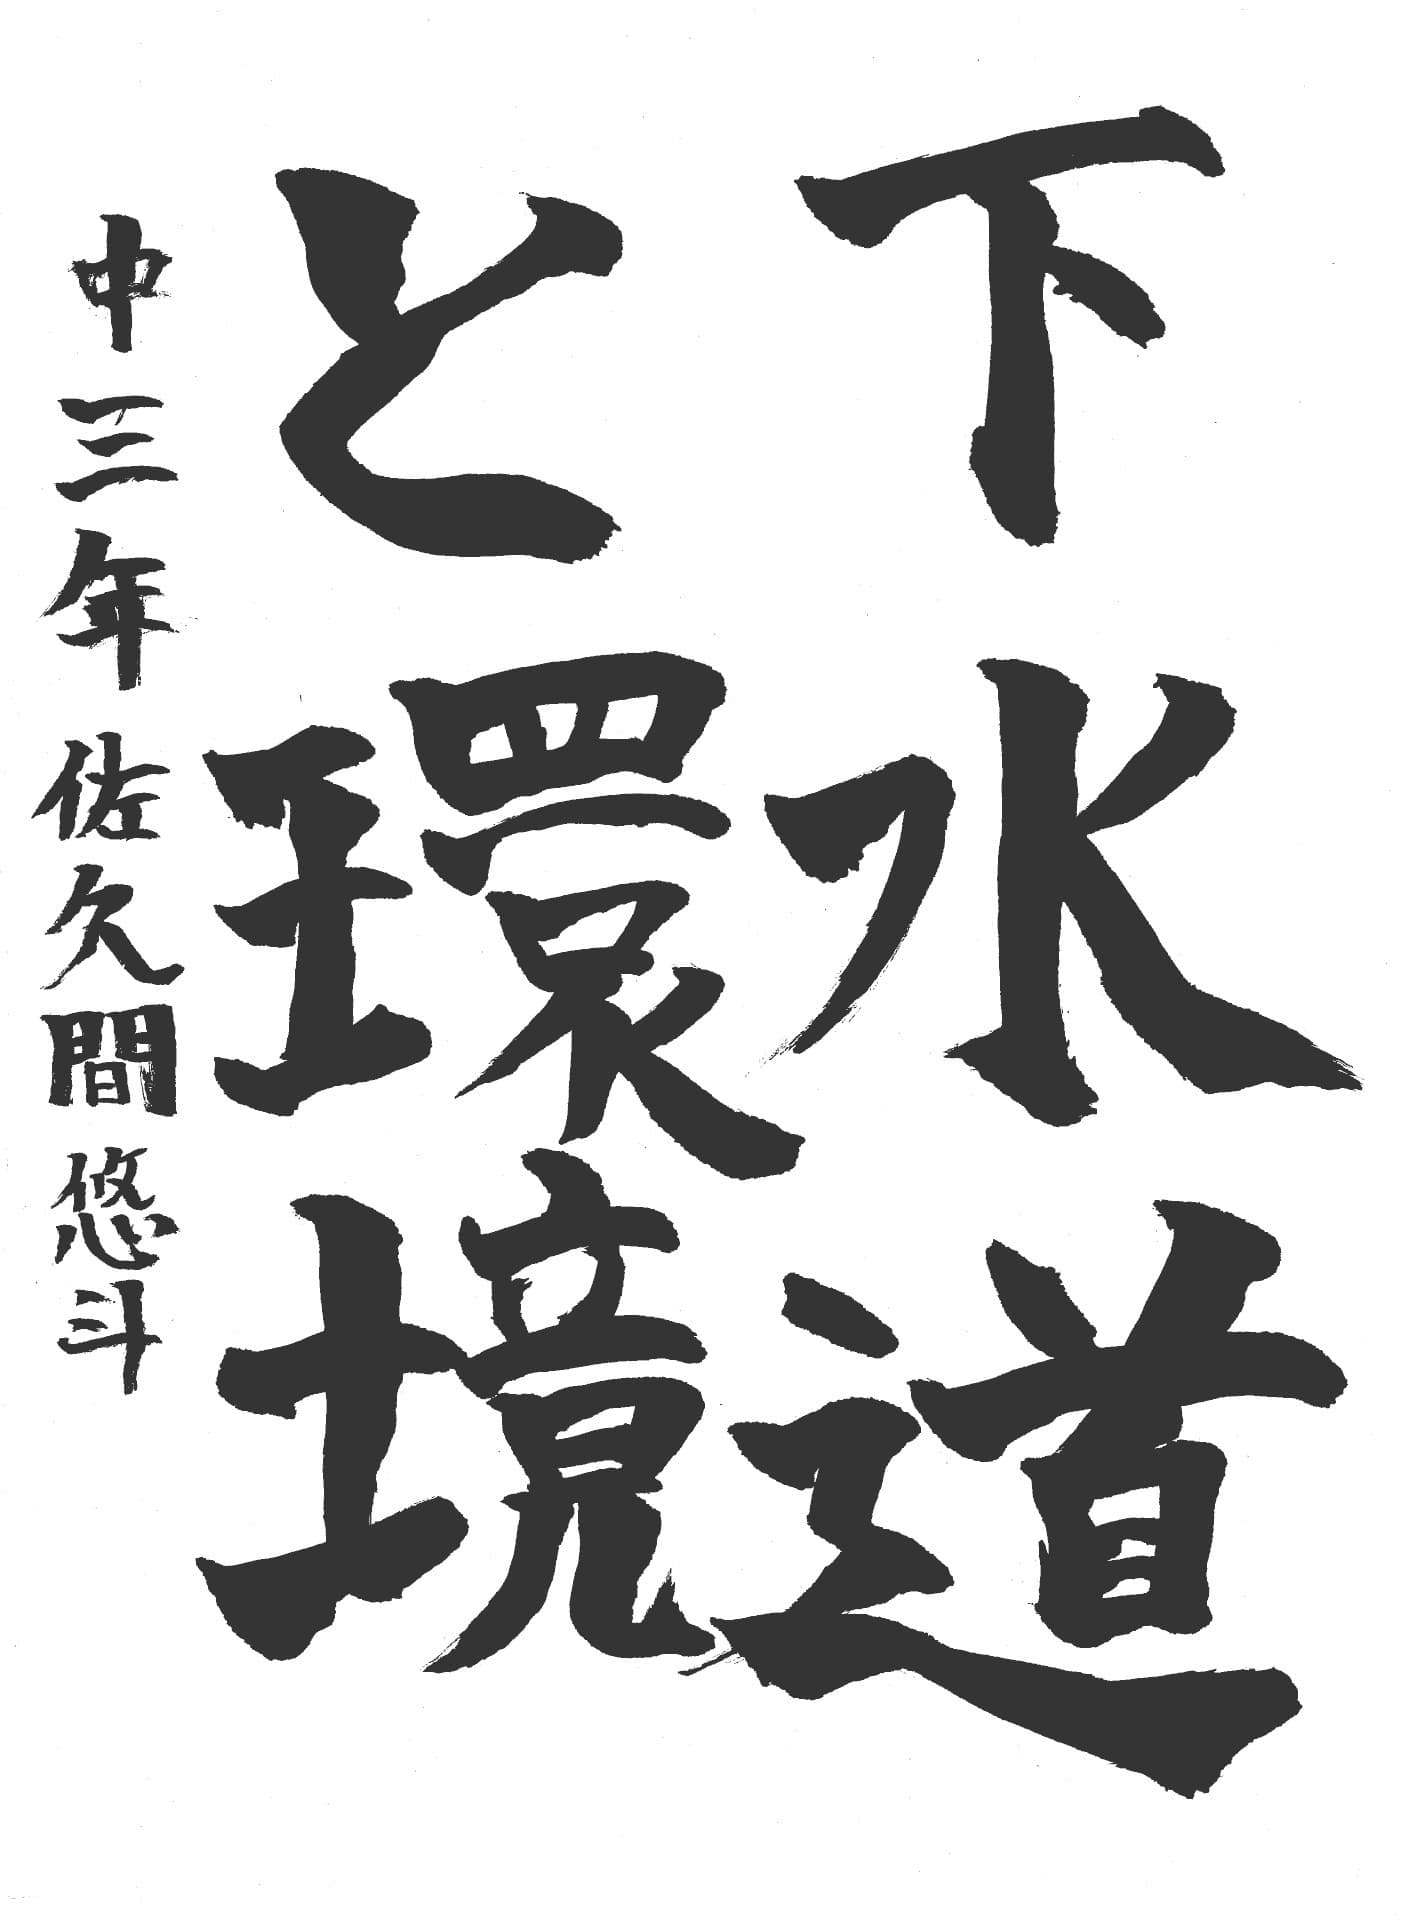 下水道
と環境
中三年佐久間悠斗